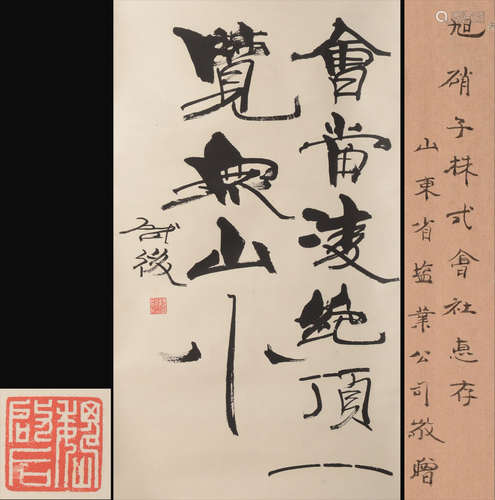 旭硝子株式會社惠存
山東省盐業公司敬贈
會當凌絶頂一
覽衆山小
啟後
魏啟后